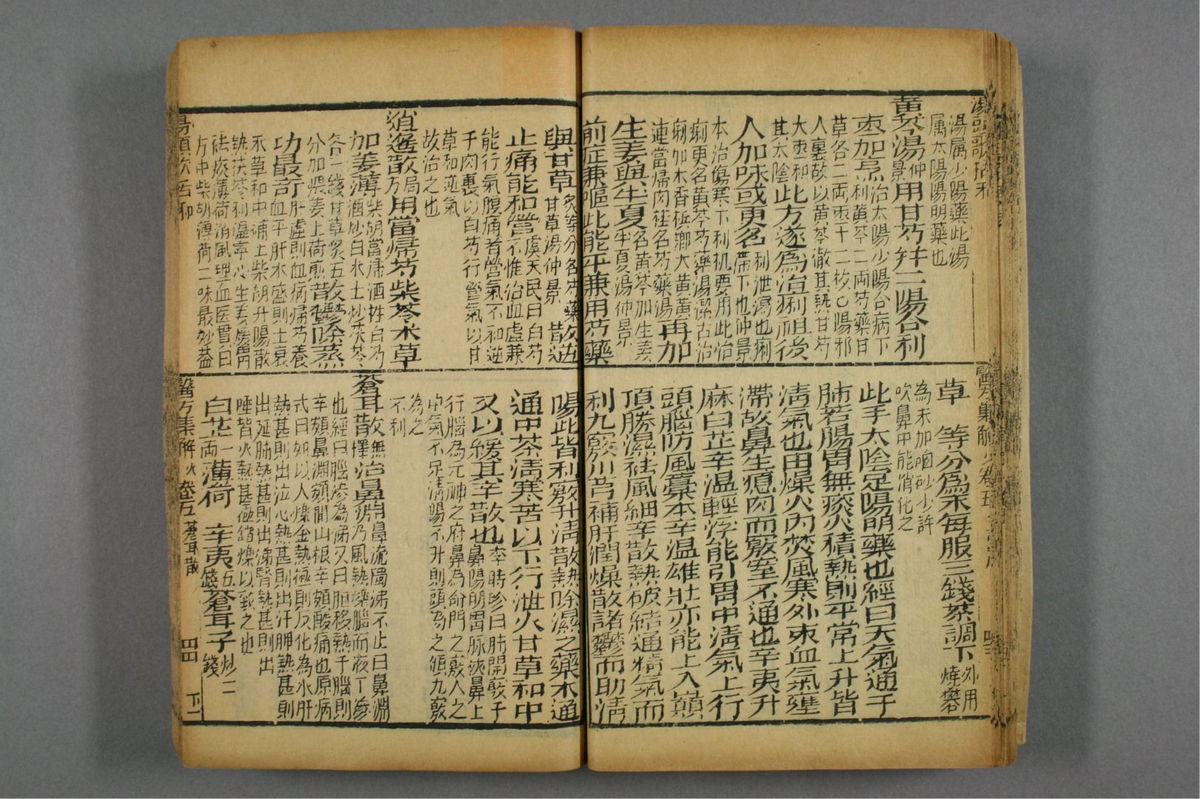 湯頭歌括 和
湯屬少陽藥此湯
屬太陽陽明藥也
黃芩湯仲景用甘芍并二陽合利
棗加烹治太陽少陽合病下利黃芩二兩芍藥甘
草各二兩棗十二枚〇陽邪
入裏故以黃芩徹其熱甘芍
大棗和其太陰此方遂為治痢祖後
人加味或更名利泄瀉也痢滯下也仲景
本治傷寒下利機要用此治
痢更名黃芩芍藥湯潔古治
痢加木香檳榔大黃黃
連當歸肉桂名芍藥湯再加
生姜與半夏名黃芩加生姜半夏湯仲景
前症兼嘔此能平兼用芍藥
醫方集解 卷五
草 等分為末每服三錢茶調下外用煒礬
為末加硇砂少許
吹鼻中能消化之
此手太陰足陽明藥也經曰天氣通于
肺若腸胃無痰火積熱則平常上升皆
清氣也由燥火內焚風寒外束血氣壅
滯故鼻生瘜肉而竅窒不通也辛夷升
麻白芷辛溫輕浮能引胃中清氣上行
頭腦防風藁本辛溫雄壯亦能上入巔
頂勝濕祛風細辛散熱破結通精氣而
利九竅川芎補肝潤燥散諸鬱而助清
與甘草炙等分名芍藥甘草湯仲景散逆
止痛能和營虞天民曰白芍不惟治血虛兼
能行氣腹痛者營氣不和逆
于肉裏以白芍行營氣以甘
草和逆氣
故治之也
逍遙散局方用當歸芍柴苓术草
加姜薄柴胡當歸酒拌白芍酒炒白术土炒茯苓
各一錢甘草炙五分加煨姜薄荷煎散鬱除蒸
功最奇肝虛則血病歸芍養血平肝木盛則土衰
术草和中補土柴胡升陽散
熱茯苓利濕寧心生姜煖胃
祛痰薄荷消風理血醫貫曰
方中柴胡薄荷二味最妙蓋
湯頭歌括 和
陽此皆利竅升清散熱除濕之藥木通
通中茶清寒苦以下行泄火甘草和中
又以緩其辛散也李時珍曰肺開竅于鼻陽明胃脈挾鼻上
行腦為元神之府鼻為命門之竅人之
中氣不足清陽不升則頭為之傾九竅
為之
不利
蒼耳散無擇治鼻淵鼻流濁涕不止曰鼻淵乃風熱爍腦而液下滲
也經曰腦滲為涕又曰胆移熱于腦則
辛頞鼻淵頞間山根辛頞酸痛也原病
式曰如以火爍金熱極則反化為水肝
熱甚則出泣心熱甚則出汗脾熱甚則
出涎肺熱甚則出涕腎熱甚則出
唾皆火熱甚極銷爍以致之也
白芷一兩薄荷 辛夷五錢蒼耳子炒二錢
醫方集解 火 卷五 蒼耳散 四 下二